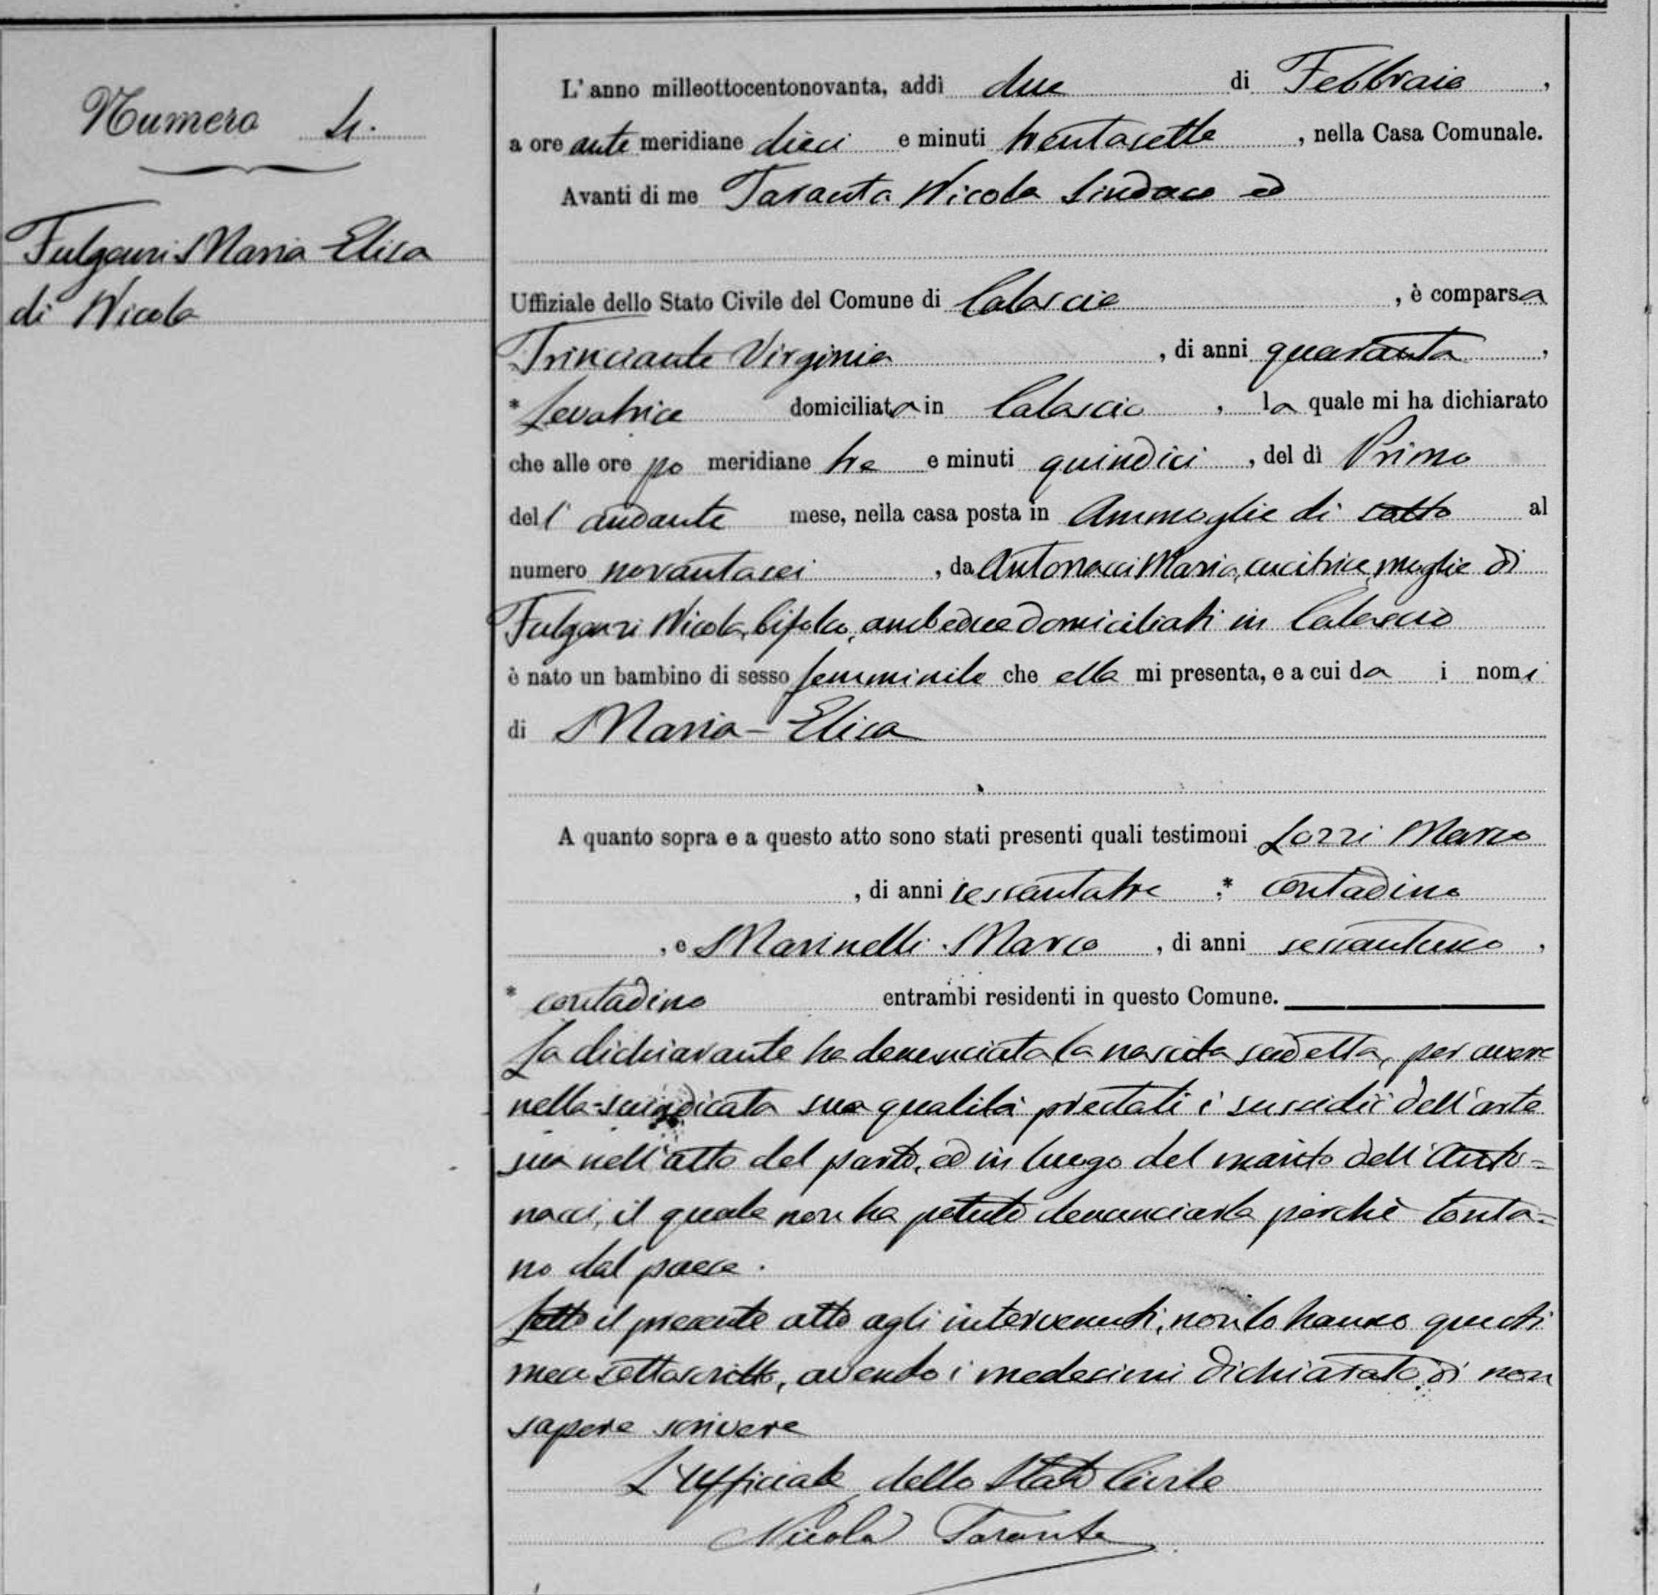 Numero 4.
Fulgenzi Maria Elisa
di Nicola
L'anno milleottocentonovanta, addì due di Febbraio,
a ore ante meridiane dieci e minuti trentasette, nella Casa Comunale.
Avanti di me Taranta Nicola Sindaco ed
Uffiziale dello Stato Civile del Comune di Calascio, è comparsa
Trinciante Virginia, di anni quaranta,
* Levatrice domiciliata in Calascio, la quale mi ha dichiarato
che alle ore po meridiane tre e minuti quindici, del dì Primo
dell'andante mese, nella casa posta in di sotto al
numero novantasei, da Antonacci Maria, cucitrice, moglie di
Fulgenzi Nicola, bifolco, ambedue domiciliati in Calascio
è nato un bambino di sesso femminile che ella mi presenta, e a cui da i nomi
di Maria-Elisa
A quanto sopra e a questo atto sono stati presenti quali testimoni Lozzi Marco
, di anni sessantatre, * contadino
, e Marinelli Marco, di anni sessantuno,
* contadino entrambi residenti in questo Comune.
La dichiarante ha denunciata la nascita sudetta, per avere
nella suindicata sua qualità prestati i sussidii dell'arte
sua nell'atto del parto, ed in luogo del marito dell'Anto=
nacci, il quale non ha potuto denunciarla perchè lonta=
no dal paese.
Letto il presente atto agli intervenuti, non lo hanno questi
meco sottoscritto, avendo i medesimi dichiarato di non
sapere scrivere
L'Ufficiale dello Stato Civile
Nicola Taranta